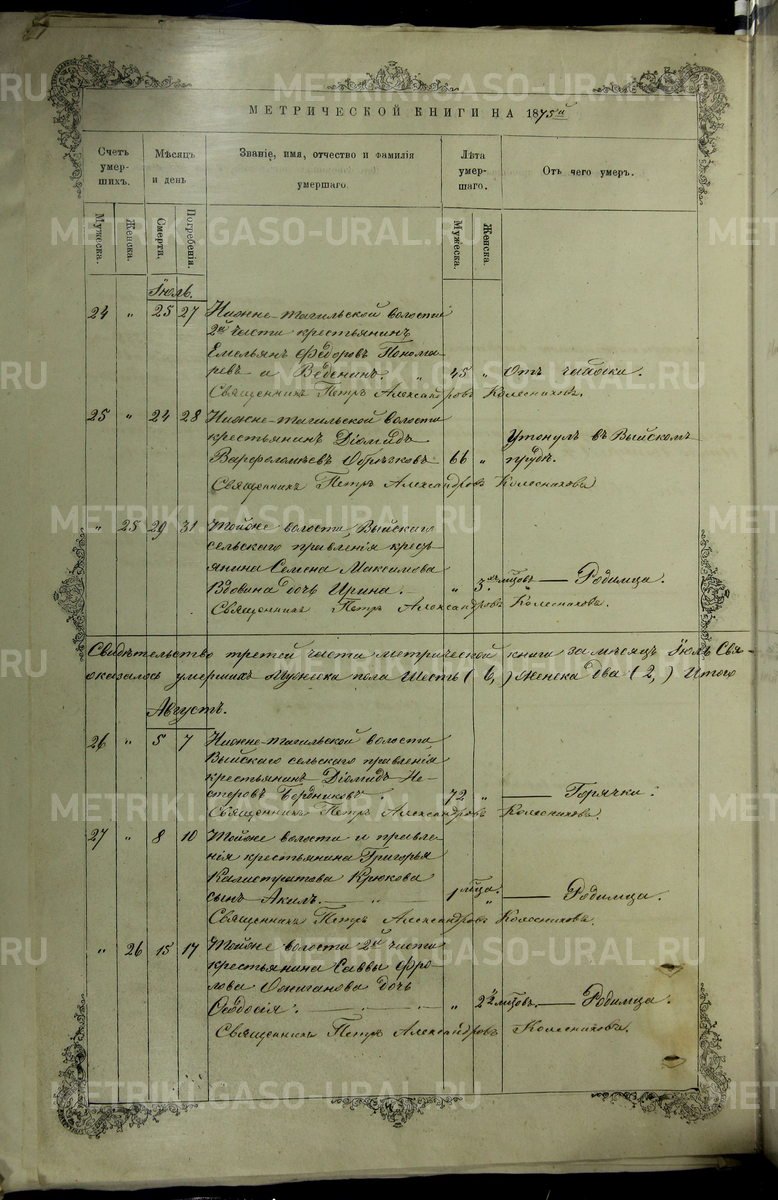 МЕТРИЧЕСКОЙ КНИГИ НА 1875й
Счетъ умер- шихъ.
Мѣсяцъ и день
Званіе, имя, отчество и фамилія умершаго.
Лѣта умер- шаго.
Отъ чего умеръ.
Мужеска.
Женска.
Смерти.
Погребенія.
Мужеска.
Женска.
Іюль.
24 " 25 27 Нижне-тагильской волости
2й части крестьянинъ
Емельянъ Ѳедоровъ Понома-
ревъ а Веденинъ. " 45 " Отъ чахотки.
Священникъ Петръ Александровъ Колесниковъ.
25 " 24 28 Нижне-тагильской волости
крестьянинъ Діомидъ Утонулъ въ Выйскомъ
Варфоломѣевъ 66 " прудѣ.
Священникъ Петръ Александровъ Колесниковъ
" 25 29 31 Тойже волости, Выйскаго
сельскаго правленія кресть-
янина Семена Максимова
Вдовина дочь Ирина. " 3хъ мѣсцовъ — Родимца.
Священникъ Петръ Александровъ Колесниковъ.
Свидѣтельство третей части метрической книги за мѣсяцъ Іюль Свя-
оказалось умершихъ Мужеска пола Шесть (6,) Женска два (2,) Итого
Августъ.
26 " 5 7 Нижне-тагильской волости,
Выйскаго сельскаго правленія
крестьянинъ Діомидъ Не-
стеровъ Бердниковъ. 72 " — Горячки.
Священникъ Петръ Александровъ Колесниковъ.
27 " 8 10 Тойже волости и правле-
нія крестьянина Григорья
Калистратова Крюкова
сынъ Акилъ. 1 мсца. " — Родимца.
Священникъ Петръ Александровъ Колесниковъ.
" 26 15 17 Тойже волости 2й части
крестьянина Саввы Фро-
лова дочь
Ѳеодосія. " 2хъ мсцовъ. — Родимца.
Священникъ Петръ Александровъ Колесниковъ.
METRIKI.GASO-URAL.RU